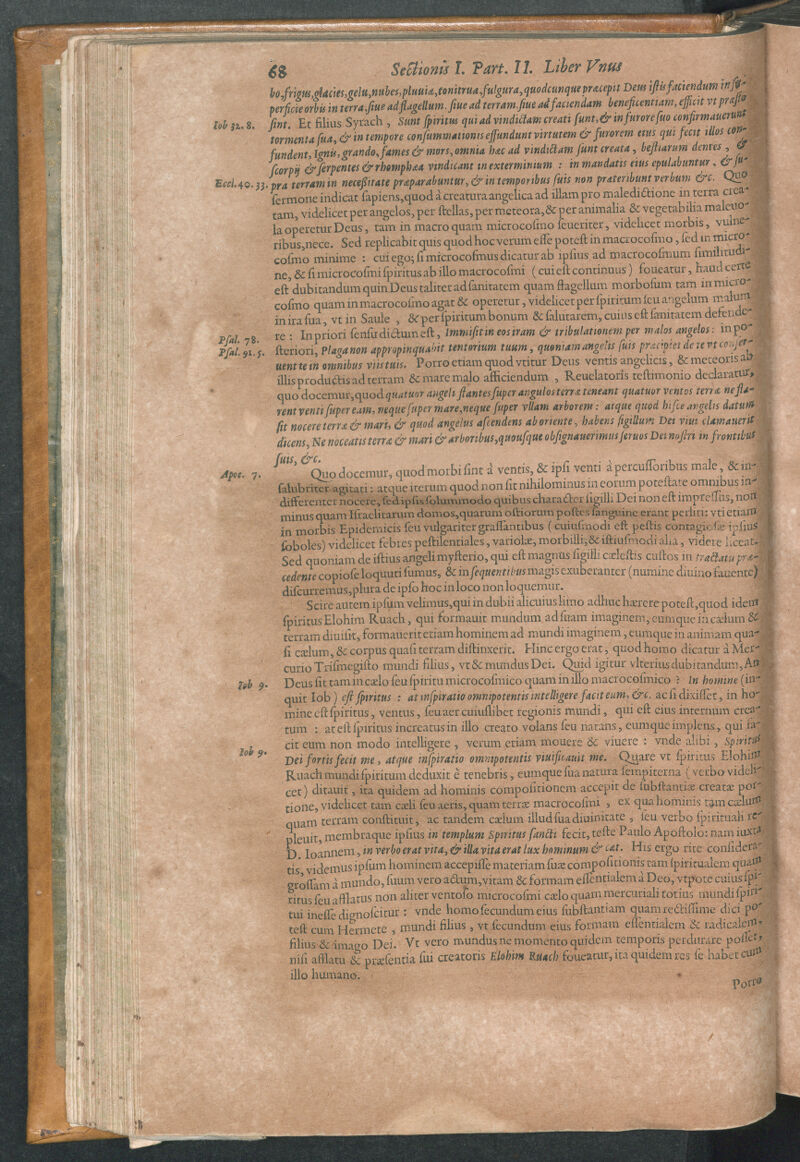 68 Sectionis I. Part. II. Liber Vnus
bo, frigus, glacies, gelu, nubes, pluuiæ, tonitrua, fulgura, quodcunque præcepit Deus istis faciendum in su-
perficie orbis in terra, siue ad flagellum. siue ad terram. siue ad faciendam beneficentiam, efficit vt præsto
Iob 32. 8. sint. Et filius Syrach, Sunt spiritus qui ad vindictam creati sunt, & in furore suo confirmauerunt
tormenta sua, & in tempore consummationis effundunt virtutem & furorem eius qui fecit illos con-
fundent, Ignis, grando, fames & mors, omnia hæc ad vindictam sunt creata, bestiarum dentes, &
scorpij & serpentes & rhomphæa vindicant in exterminium: in mandatis eius epulabuntur, & su-
Eccl. 40. 33. pra terram in necessitate præparabuntur, & in temporibus suis non præteribunt verbum &c. Quo
sermone indicat sapiens, quod à creatura angelica ad illam pro maledictione in terra crea-
tam, videlicet per angelos, per stellas, per meteora, & per animalia & vegetabilia maleuo-
la operetur Deus, tam in macro quam microcosmo seueriter, videlicet morbis, vulne-
ribus, nece. Sed replicabit quis quod hoc verum esse potest in macrocosmo, sed in micro-
cosmo minime: cui ego; si microcosmus dicatur ab ipsius ad macrocosmum similitudi-
ne, & si microcosmi spiritus ab illo macrocosmi (cui est continuus) foueatur, haud certe
est dubitandum quin Deus taliter ad sanitatem quam flagellum morbosum tam in micro-
cosmo quam in macrocosmo agat & operetur, videlicet per spiritum seu angelum malum
in ira sua, vt in Saule, & per spiritum bonum & salutarem, cuius est sanitatem defende-
Psal. 78. re: In priori sensu dictum est, Immisit in eos iram & tribulationem per malos angelos: in po-
Psal. 91. 5. steriori, Plaga non appropinquabit tentorium tuum, quoniam angelis suis præcipiet de te vt conser-
uent te in omnibus viis tuis. Porro etiam quod vtitur Deus ventis angelicis, & meteoris ab
illis productis ad terram & mare malo afficiendum, Reuelatoris testimonio declaratur,
quo docemur, quod quatuor angeli stantes super angulos terræ teneant quatuor ventos terræ ne fla-
rent venti super eam, neque super mare, neque super vllam arborem: atque quod hisce angelis datum
sit nocere terræ & mari, & quod angelus ascendens ab oriente, habens sigillum Dei viui clamauerit
dicens, Ne noceatis terræ & mari & arboribus, quousque obsignauerimus seruos Dei nostri in frontibus
suis, &c.
Apoc. 7. Quo docemur, quod morbi sint à ventis, & ipsi venti à percussoribus male, & in-
salubriter agitati: atque iterum quod non sit nihilominus in eorum potestate omnibus in-
differenter nocere, sed ipsis solummodo quibus character sigilli Dei non est impressus, non
minus quam Israelitarum domos, quarum ostiorum postes sanguine erant perliti: vti etiam
in morbis Epidemicis seu vulgariter grassantibus (cuiusmodi est pestis contagiosæ ipsius
soboles) videlicet febres pestilentiales, variolæ, morbilli, & istiusmodi alia, videre liceat.
Sed quoniam de istius angeli mysterio, qui est magnus sigilli cælestis custos in tractatu præ-
cedente copiose loquuti sumus, & in sequentibus magis exuberanter (numine diuino fauente)
discurremus, plura de ipso hoc in loco non loquemur.
Scire autem ipsum velimus, qui in dubii alicuius limo adhuc hærere potest, quod idem
spiritus Elohim Ruach, qui formauit mundum ad suam imaginem, eumque in cælum &
terram diuisit, formauerit etiam hominem ad mundi imaginem, eumque in animam qua-
si cælum, & corpus quasi terram distinxerit. Hinc ergo erat, quod homo dicatur à Mer-
curio Trismegisto mundi filius, vt & mundus Dei. Quid igitur vlterius dubitandum, An
Iob 9. Deus sit tam in cælo seu spiritu microcosmico quam in illo macrocosmico? In homine (in-
quit Iob) est spiritus: at inspiratio omnipotentis intelligere facit eum, &c. ac si dixisset, in ho-
mine est spiritus, ventus, seu aer cuiuslibet regionis mundi, qui est eius internum crea-
tum: at est spiritus increatus in illo creato volans seu natans, eumque implens, qui fa-
cit eum non modo intelligere, verum etiam mouere & viuere: vnde alibi, Spiritus
Iob 9. Dei fortis fecit me, atque inspiratio omnipotentis viuificauit me. Quare vt spiritus Elohim
Ruach mundi spiritum deduxit è tenebris, eumque sua natura sempiterna (verbo videli-
cet) ditauit, ita quidem ad hominis compositionem accepit de substantiæ creatæ por-
tione, videlicet tam cæli seu aeris, quam terræ macrocosmi, ex qua hominis tam cælum
quam terram constituit, ac tandem cælum illud sua diuinitate, seu verbo spirituali re-
pleuit, membraque ipsius in templum Spiritus sancti fecit, teste Paulo Apostolo: nam iuxta
D. Ioannem, in verbo erat vita, & illa vita erat lux hominum &cæt. His ergo rite considera-
tis, videmus ipsum hominem accepisse materiam suæ compositionis tam spiritualem quam
grossam à mundo, suum vero actum, vitam & formam essentialem à Deo, vtpote cuius spi-
ritus seu afflatus non aliter ventoso microcosmi cælo quam mercuriali totius mundi spiri-
tui inesse dignoscitur: vnde homo secundum eius substantiam quam rectissime dici po-
test cum Hermete, mundi filius, vt secundum eius formam essentialem & radicalem,
filius & imago Dei. Vt vero mundus ne momento quidem temporis perdurare posset,
nisi afflatu & præsentia sui creatoris Elohim Ruach foueatur, ita quidem res se habet cum
illo humano.
Porro